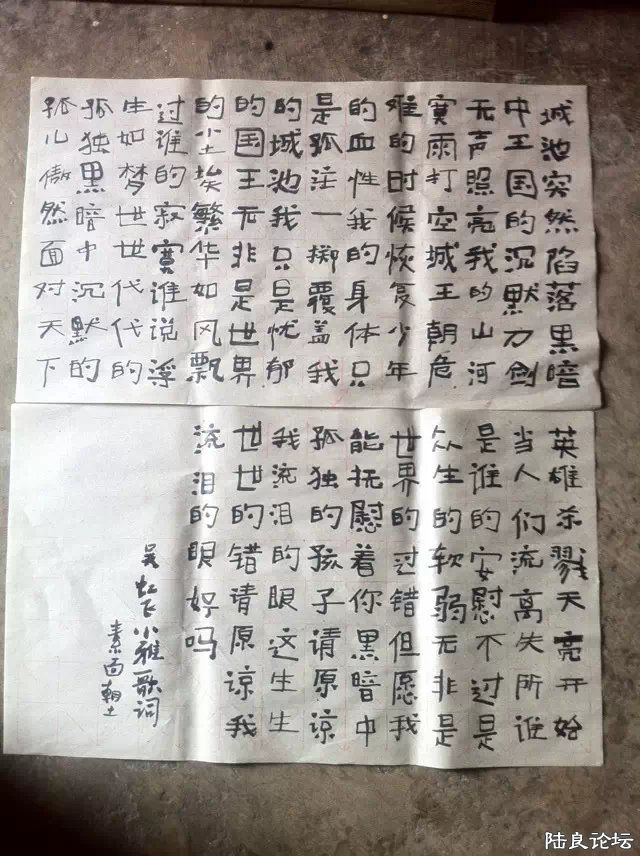 城池突然陷落黑暗
中王国的沉默刀剑
无声照亮我的山河
寞雨打空城王朝危
难的时候恢复少年
的血性我的身体只
是孤注一掷覆盖我
的城池我只是忧郁
的国王无非是世界
的尘埃繁华如风飘
过谁的寂寞谁说浮
生如梦世世代代的
孤独黑暗中沉默的
孤儿傲然面对天下
英雄杀戮天亮开始
当人们流离失所谁
是谁的安慰不过是
众生的软弱无非是
世界的过错但愿我
能抚慰着你黑暗中
孤独的孩子请原谅
我流泪的眼这生生
世世的错请原谅我
流泪的眼好吗
吴虹飞小雅歌词
素面朝土
陆良论坛